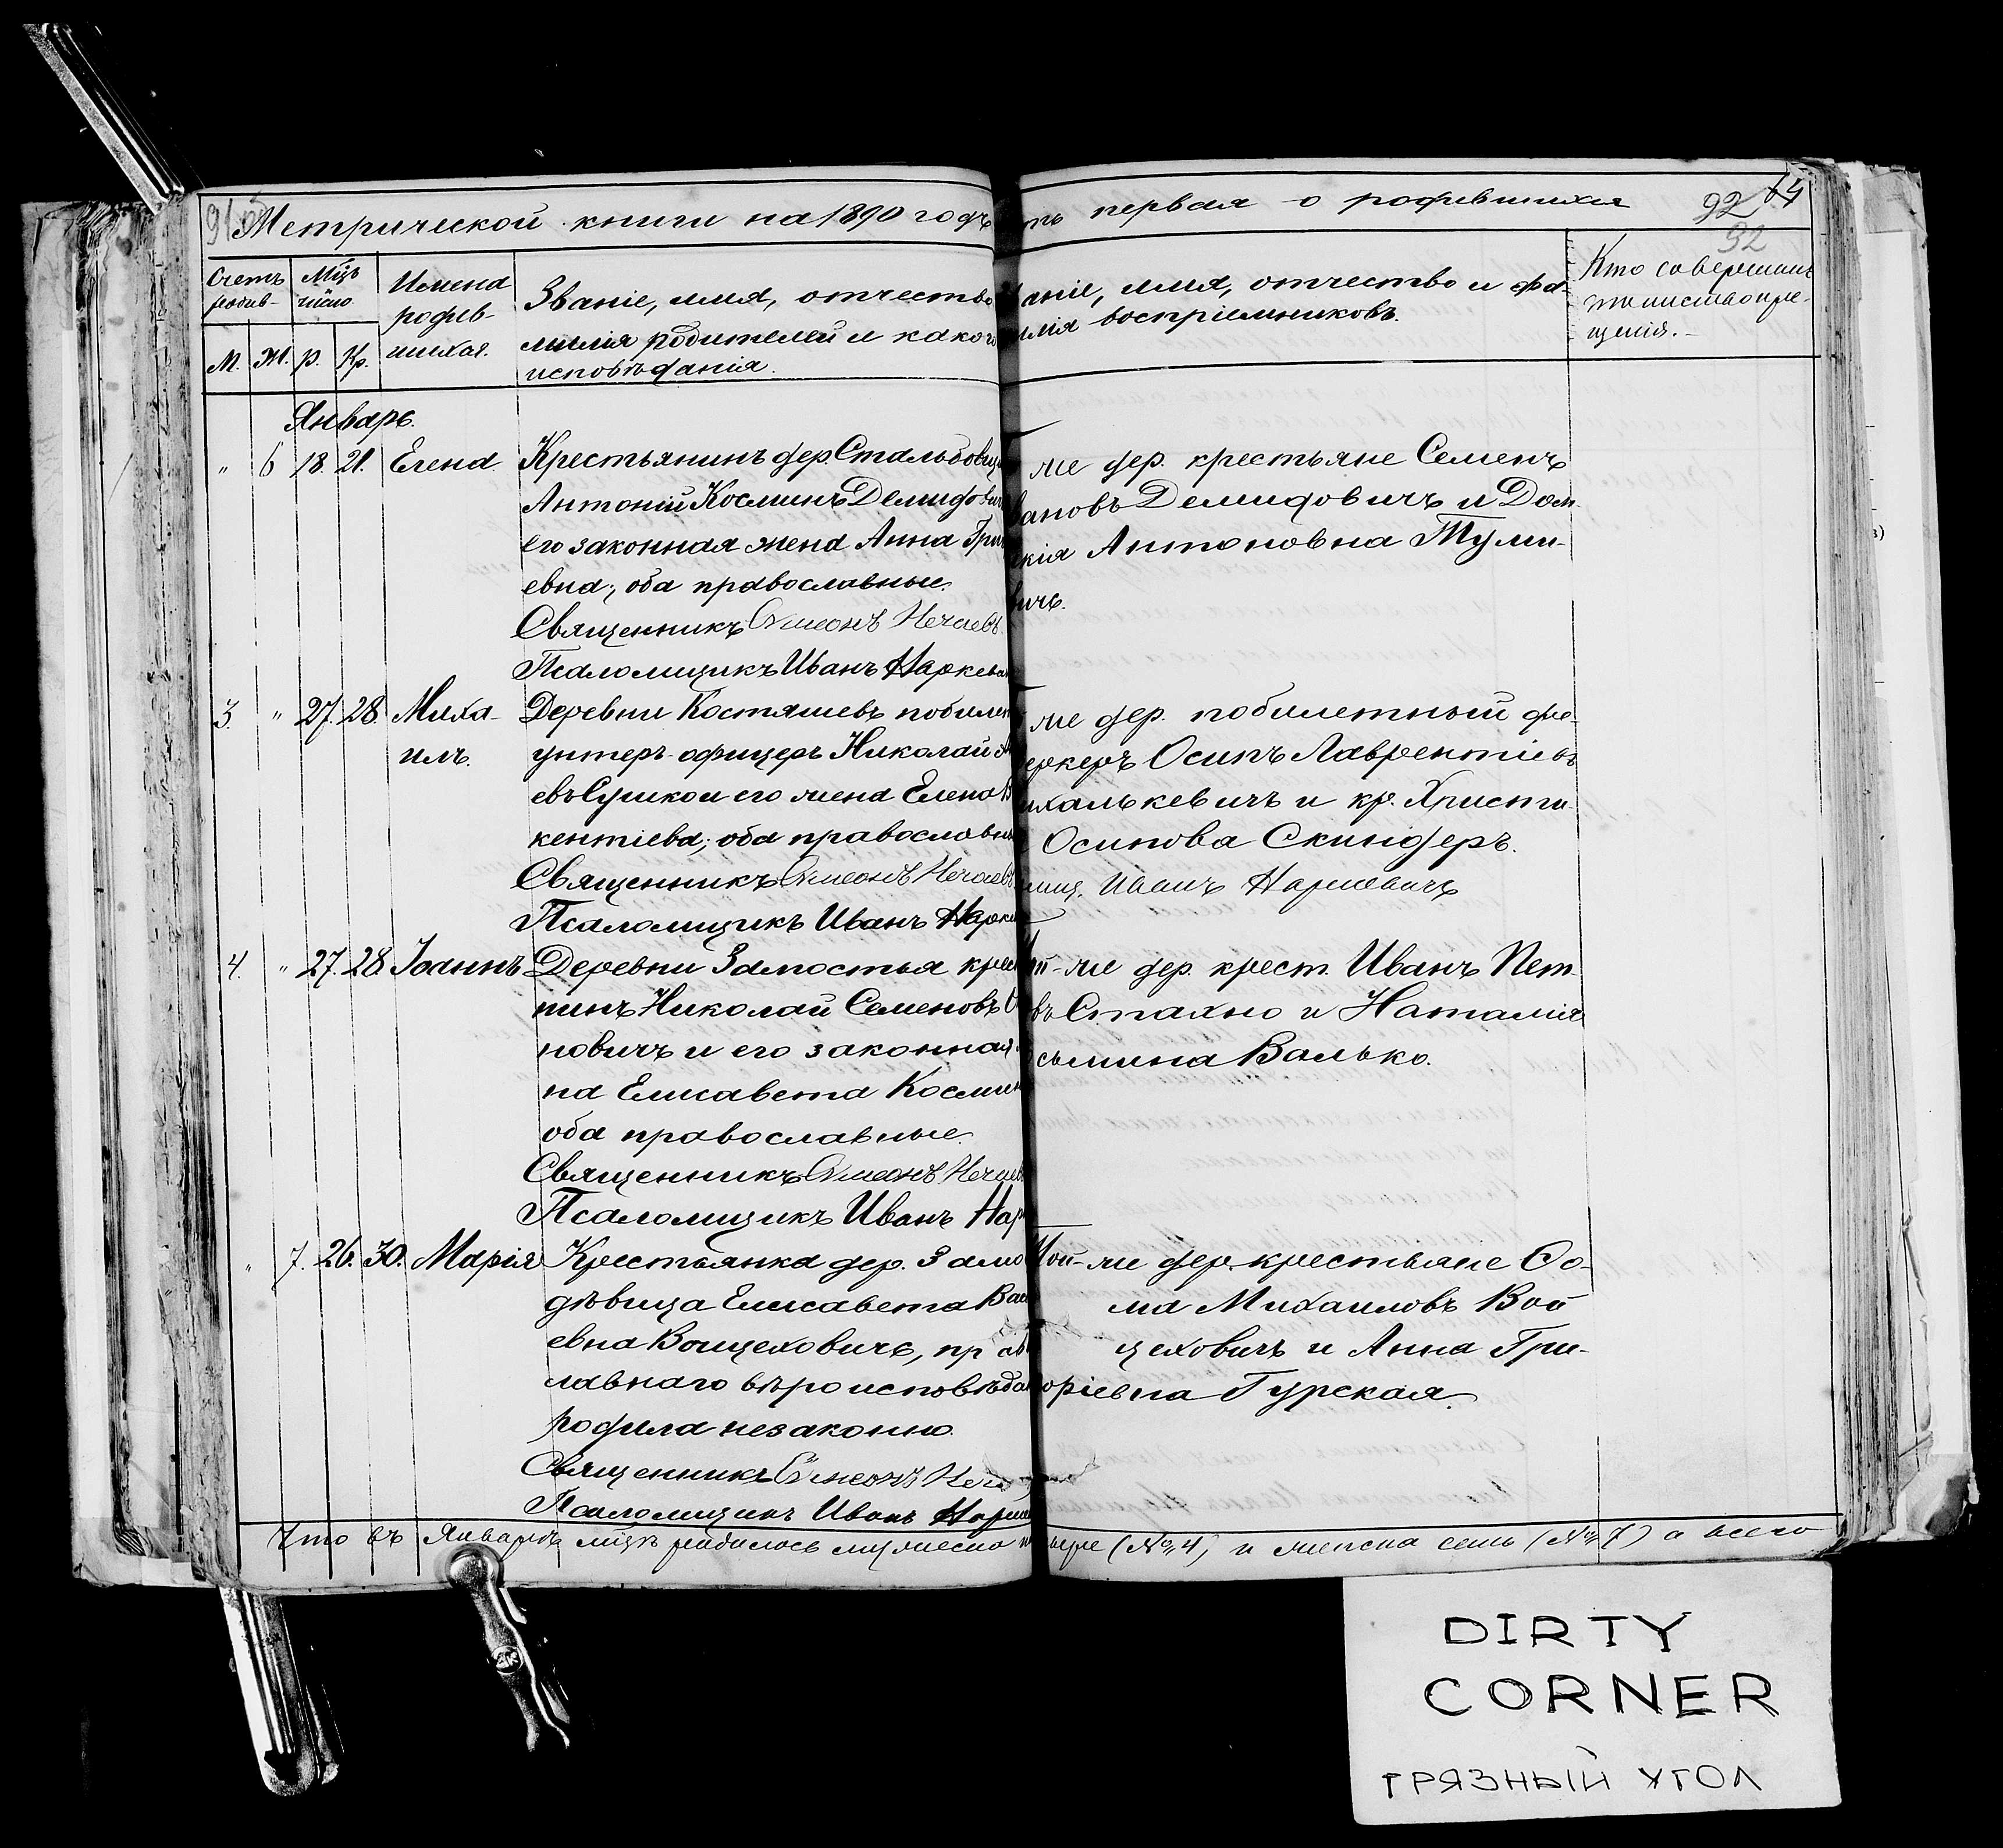 Метрической книги на 1890 годъ
ть первая о родившихся 92
32
Счетъ родив-
Мц҃ъ число
Имена родив-шихся.
Званіе, имя, отчество
милія родителей и какого
исповѣданія.
М. Ж. Р. Кр.
аніе, имя, отчество и фа-
милія воспріемниковъ.
Кто совершилъ
таинство кре-
щенія.
Январь.
" 6 18. 21. Елена
Крестьянинъ дер.
Антоній Косминъ Демидович
его законная жена Анна Гри
евна; оба православные.
Священникъ Симеонъ Нечаевъ
Псаломщикъ Иванъ Наркеви
же дер. крестьяне Семенъ
вановъ Демидовичъ и Дом-
кія Антоновна Туми-
вичъ.
3. " 27. 28. Миха-
илъ.
Деревни Костяшевъ побилет
унтеръ-офицеръ Николай
евъ Сушко и его жена Елена В
кентіева; оба православны
Священникъ Симеонъ Нечаевъ
Псаломщикъ Иванъ Нарке
же дер. побилетный фе-
еркеръ Осипъ Лаврентіевъ
ихалькевичъ и кр. Христи-
Осипова Скиндеръ.
Иванъ Наркевичъ
4. " 27. 28. Іоаннъ
Деревни Замостья крес
нинъ Николай Семеновъ
новичъ и его законная
на Елисавета Космин
оба православные.
Священникъ Симеонъ Нечаев
Псаломщикъ Иванъ Нар
Той-же дер. крест. Иванъ Пет-
въ Стахно и Наталія
сьмина Валько.
" 7. 26. 30. Марія
Крестьянка дер. Замо
дѣвица Елисавета Вас
евна Войцеховичъ, прав
лавнаго вѣроисповѣдан
родила незаконно.
Священникъ Симеонъ Неч
Псаломщикъ Иванъ Нарке
Той-же дер. крестьяне Ѳо-
ма Михаиловъ Вой
цеховичъ и Анна Гри-
оріевна Гурская.
Что въ Январѣ мц҃ѣ родилось мужеска
тыре (№ 4) и женска семь (№ 7) а всего
DIRTY
CORNER
ГРЯЗНЫЙ УГОЛ